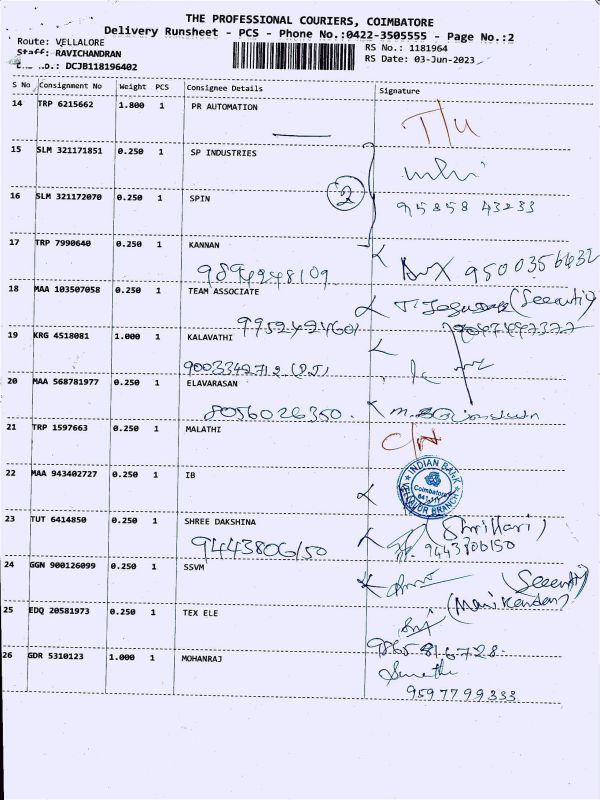 THE PROFESSIONAL COURIERS, COIMBATORE
Delivery Runsheet - PCS - Phone No.:0422-3505555 - Page No.:2
Route: VELLALORE
RS No.: 1181964
Staff: RAVICHANDRAN
RS Date: 03-Jun-2023
DCJB118196402
S No Consignment No Weight PCS Consignee Details Signature
14 TRP 6215662 1.800 1 PR AUTOMATION
T/U
15 SLM 321171851 0.250 1 SP INDUSTRIES
16 SLM 321172070 0.250 1 SPIN
2
95858 43233
17 TRP 7990640 0.250 1 KANNAN
9894248109
9500356432
18 MAA 103507058 0.250 1 TEAM ASSOCIATE
(Security)
9952424601
19 KRG 4518081 1.000 1 KALAVATHI
9003342712
20 MAA 568781977 0.250 1 ELAVARASAN
8056026350.
21 TRP 1597663 0.250 1 MALATHI
C/N
22 MAA 943402727 0.250 1 IB
INDIAN BANK
Coimbatore
VELLALUR BRANCH
23 TUT 6414850 0.250 1 SHREE DAKSHINA
(Shrillari)
9443806150
9443806150
24 GGN 900126099 0.250 1 SSVM
(Security)
(Manikandan)
25 EDQ 20581973 0.250 1 TEX ELE
9865816728.
26 GDR 5310123 1.000 1 MOHANRAJ
9597799333